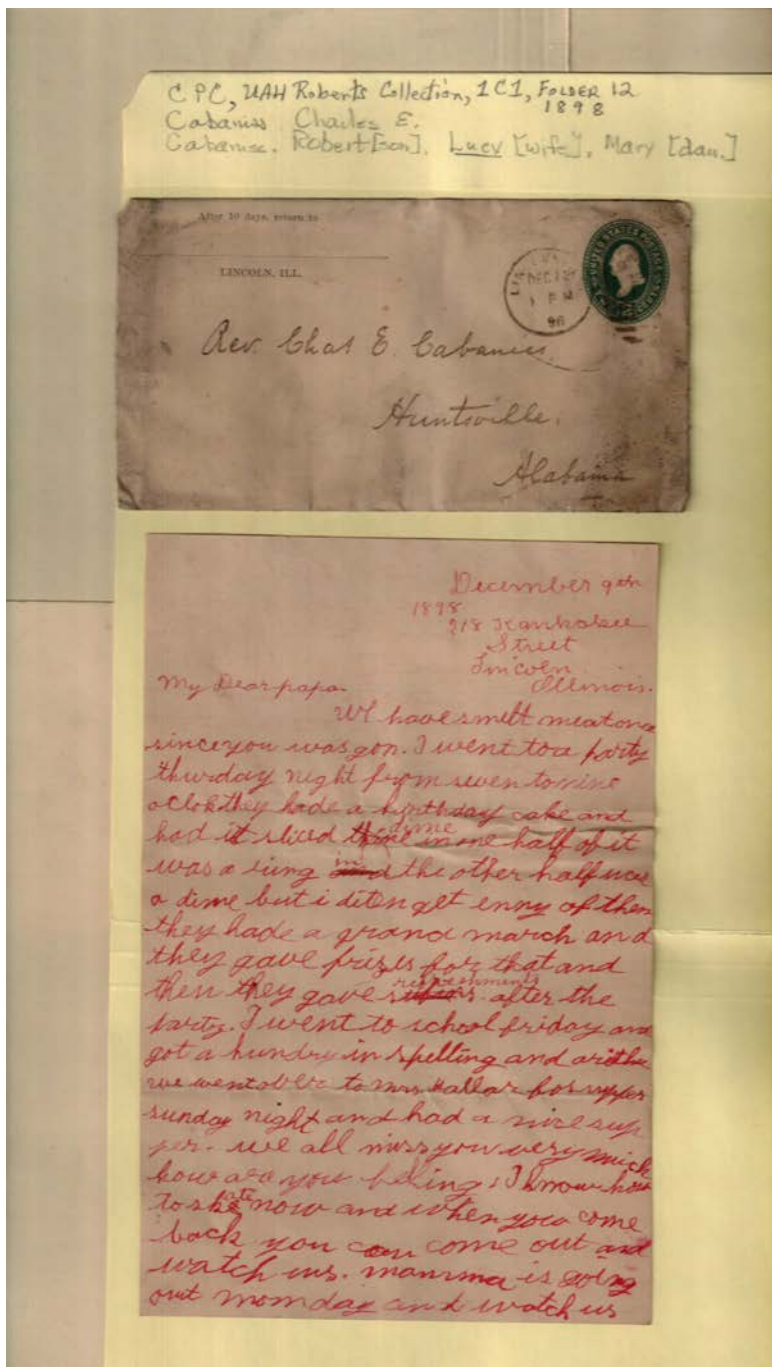 CPC, UAH Roberts Collection, 1C1, FOLDER 12
1898
Cabaniss Charles E.
Cabaniss. Robert [son], Lucy [wife], Mary [dau.]
After 10 days, return to
LINCOLN, ILL.
UNITED STATES POSTAGE
DEC 12
1 PM
98
Rev. Chas E. Cabaniss.
Huntsville,
Alabama
December 9th
1898
218 Kankakee
Street
Lincoln
Illinois.
My Dear papa.
We have smelt meat once
since you was gon. I went to a party
thurday night from seven to nine
oclok they hade a birthday cake and
had it sliced dime in one half of it
was a ring in the other half was
a dime but i diten get enny of them
they hade a grand march and
they gave prizes for that and
then they gave refreshments after the
party. I went to school friday and
got a hundry in spelling and
we went over to mrs Hallar for supper
sunday night and had a nice sup
per. we all miss you very much
how are you feeling. I know how
to skate now and when you come
back you can come out and
watch us. mamma is going
out momday and watch us